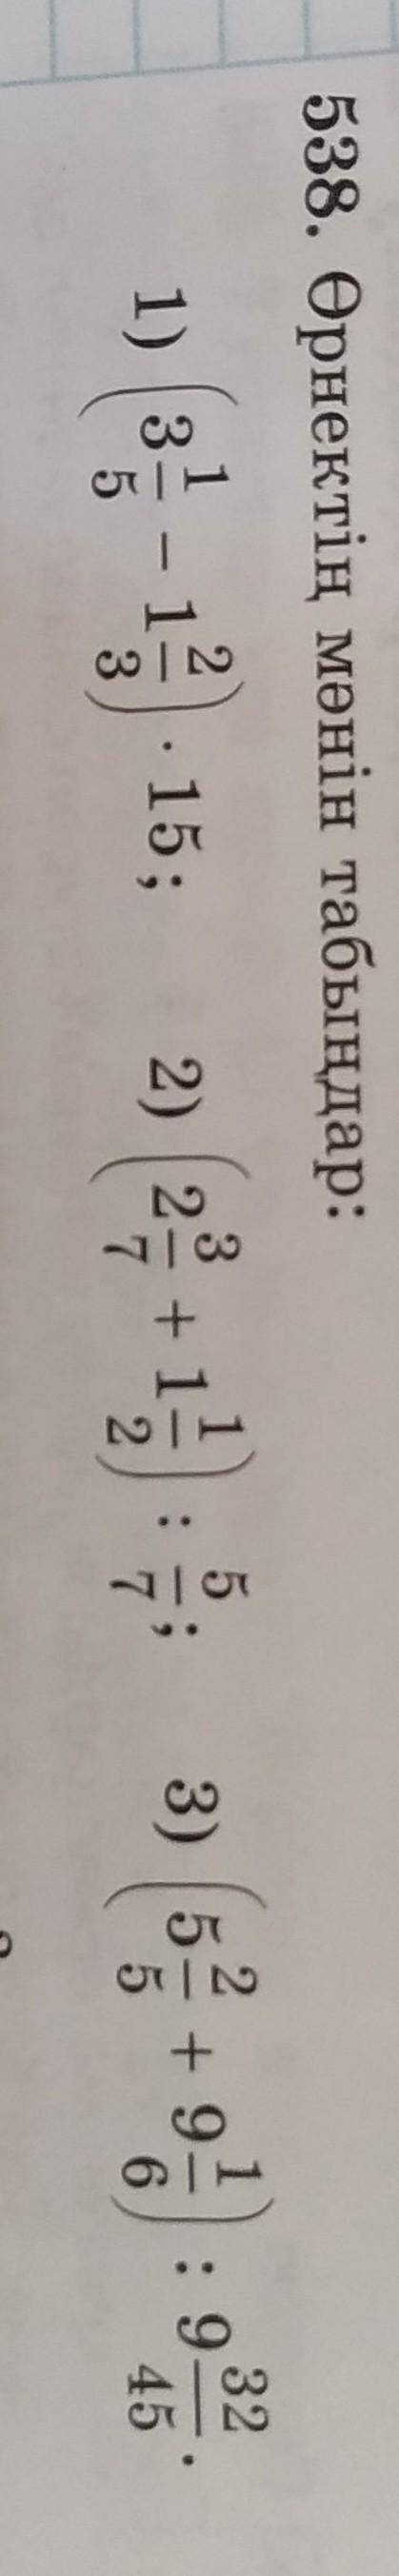 538. Өрнектің мәнін табыңдар:
1) (3 1/5 − 1 2/3) · 15; 2) (2 3/7 + 1 1/2) : 5/7; 3) (5 2/5 + 9 1/6) : 9 32/45.